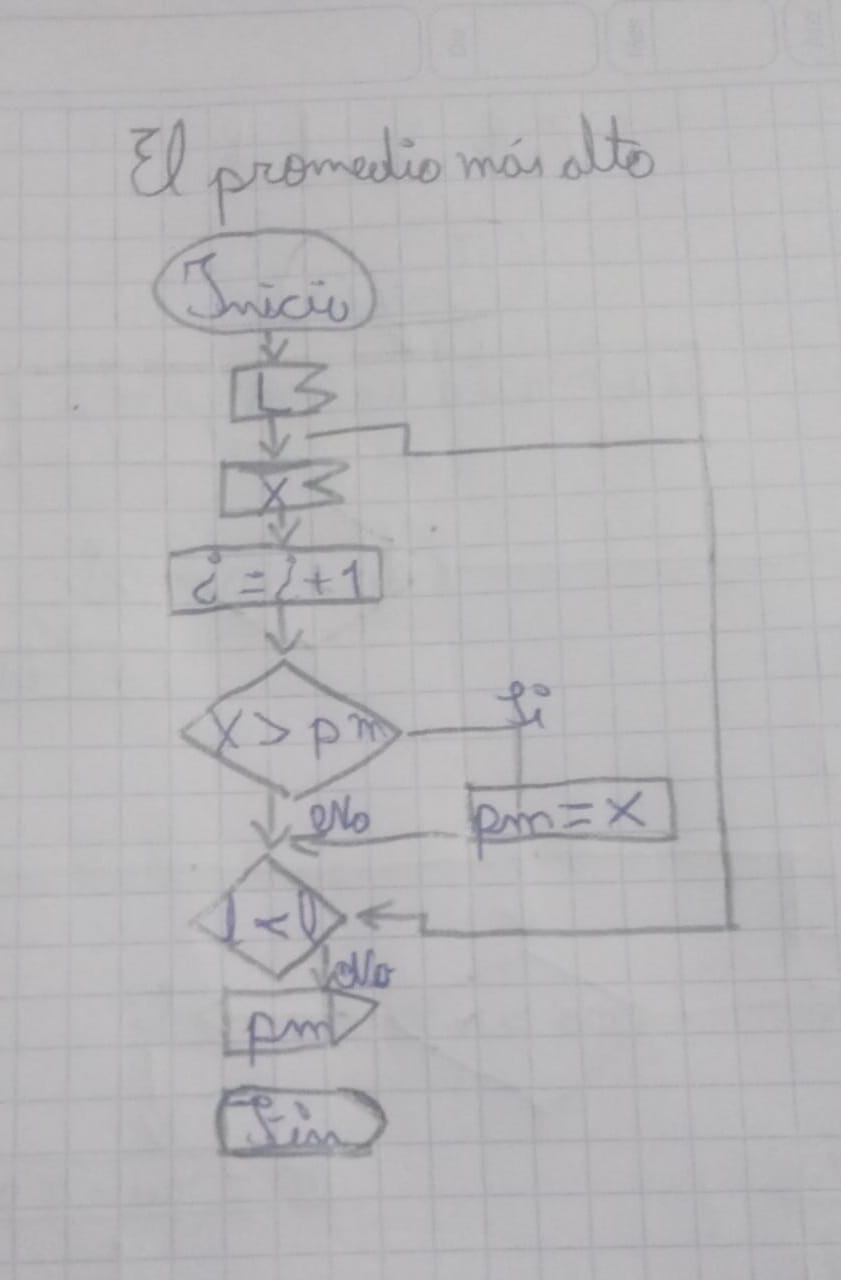 El promedio más alto
Inicio
L
X
i = i + 1
X > pm
Si
No
pm = X
pm
No
Fin